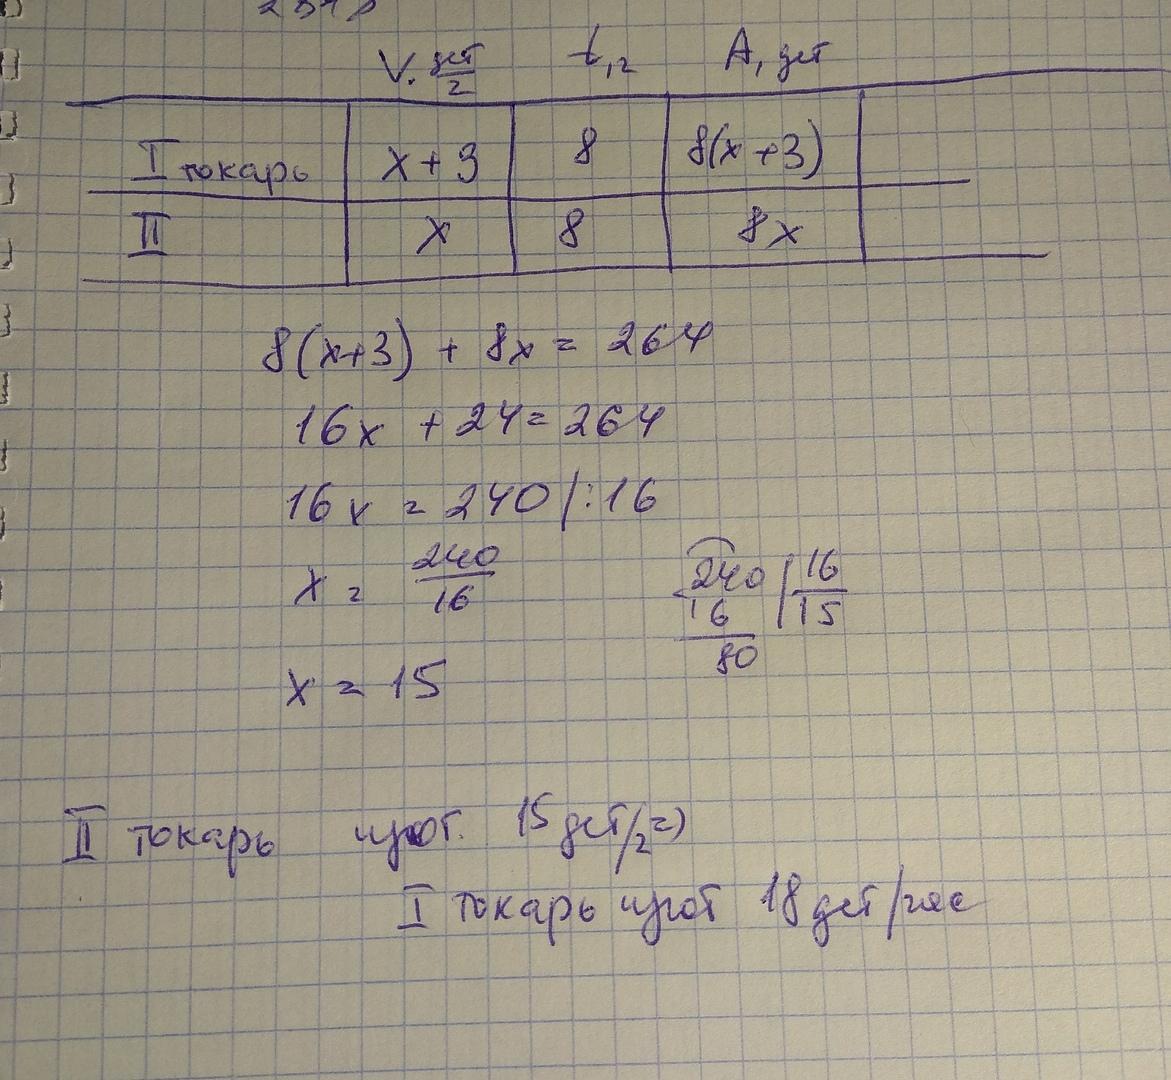 V. дет/г t, г A, дет
I токарь x + 3 8 8(x + 3)
II x 8 8x
8(x+3) + 8x = 264
16x + 24 = 264
16x = 240 /:16
x = 240/16
240 | 16
16 15
80
x = 15
II токарь изгот. 15 дет/г =)
I токарь изгот 18 дет/час